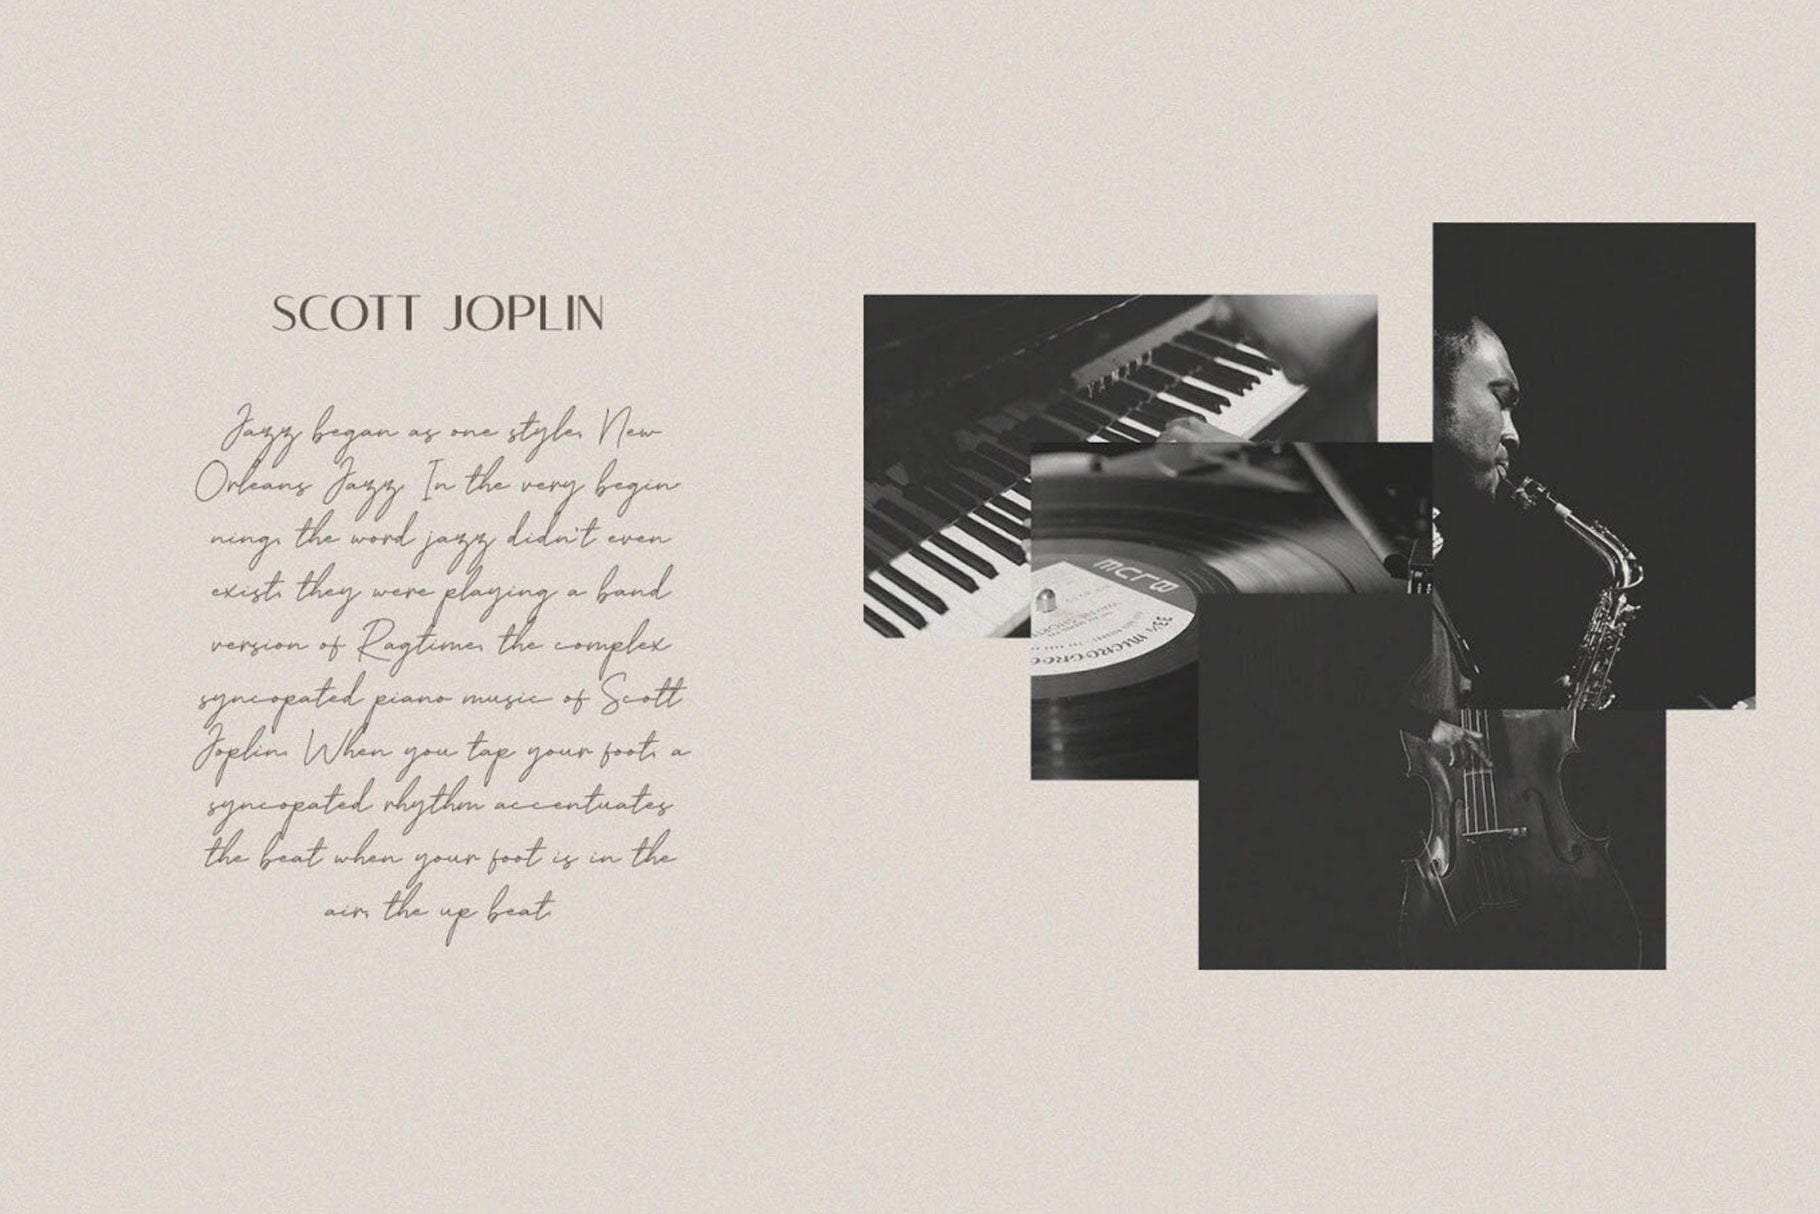 SCOTT JOPLIN
Jazz began as one style, New
Orleans Jazz. In the very begin-
ning, the word jazz didn't even
exist, they were playing a band
version of Ragtime, the complex
syncopated piano music of Scott
Joplin. When you tap your foot, a
syncopated rhythm accentuates
the beat when your foot is in the
air, the up beat.
YAMAHA
33⅓ MICROGROO